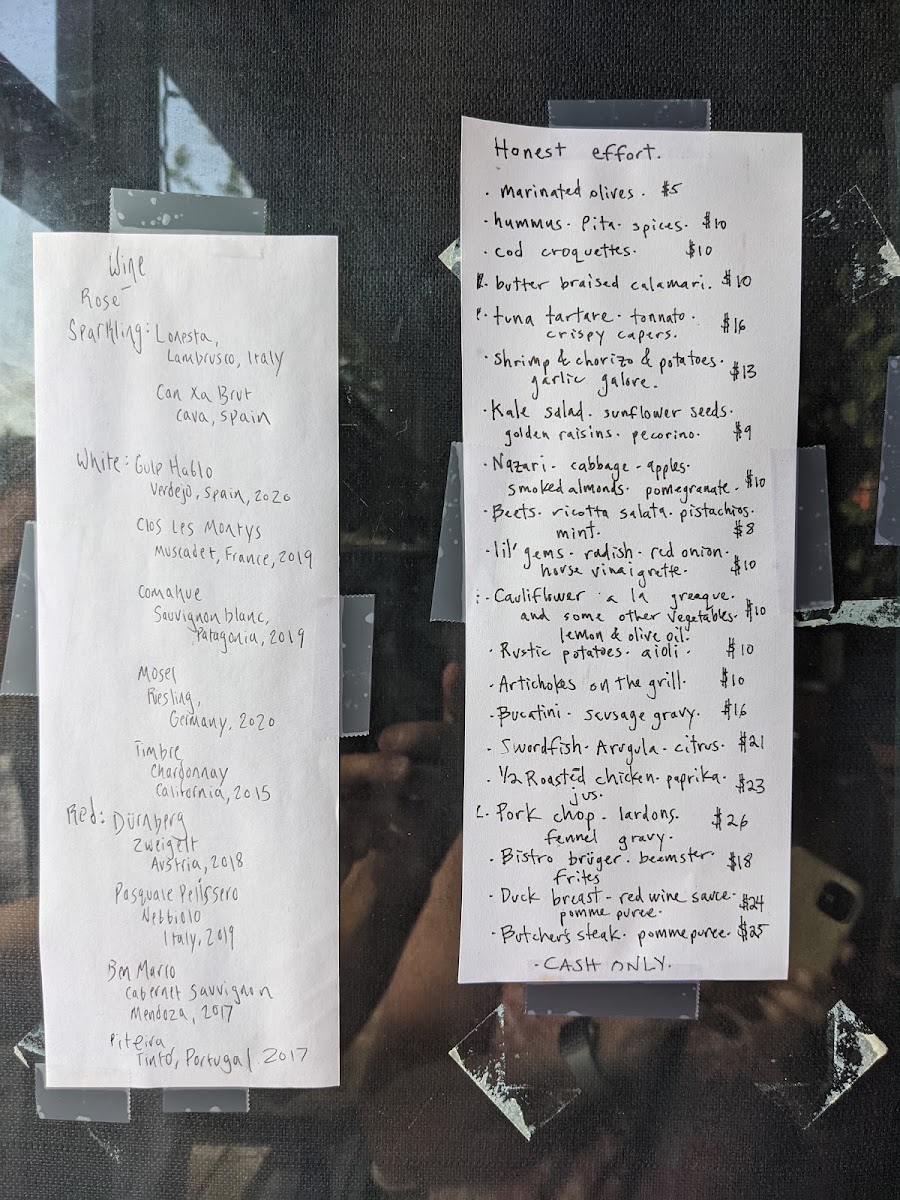 Wine
Rosé
Sparkling: Lonesta,
Lambrusco, Italy
Can Xa Brut
Cava, Spain
White: Gulp Hablo
Verdejo, Spain, 2020
Clos Les Montys
Muscadet, France, 2019
Comahue
Sauvignon blanc,
Patagonia, 2019
Mosel
Riesling,
Germany, 2020
Timbre
Chardonnay
California, 2015
Red: Dürnberg
Zweigelt
Austria, 2018
Pasquale Pelissero
Nebbiolo
Italy, 2019
Ben Marco
Cabernet Sauvignon
Mendoza, 2017
Piteira
Tinto, Portugal 2017
Honest effort.
· marinated olives. $5
· hummus. pita. spices. $10
· cod croquettes. $10
· butter braised calamari. $10
· tuna tartare. tonnato.
crispy capers. $16
· shrimp & chorizo & potatoes.
garlic galore. $13
· Kale salad. sunflower seeds.
golden raisins. pecorino. $9
· Nazari. cabbage - apples.
smoked almonds. pomegranate. $10
· Beets. ricotta salata. pistachios.
mint. $8
· lil' gems. radish. red onion.
house vinaigrette. $10
· Cauliflower a la greaque.
and some other vegetables. $10
lemon & olive oil.
· Rustic potatoes. aioli. $10
· Artichokes on the grill. $10
· Bucatini. sausage gravy. $16
· Swordfish. Arugula. citrus. $21
· 1/2 Roasted chicken. paprika.
jus. $23
· Pork chop. lardons. $26
fennel gravy.
· Bistro brüger. beemster. $18
frites
· Duck breast - red wine sauce. $24
pomme puree.
· Butcher's steak. pomme puree. $25
· CASH ONLY.